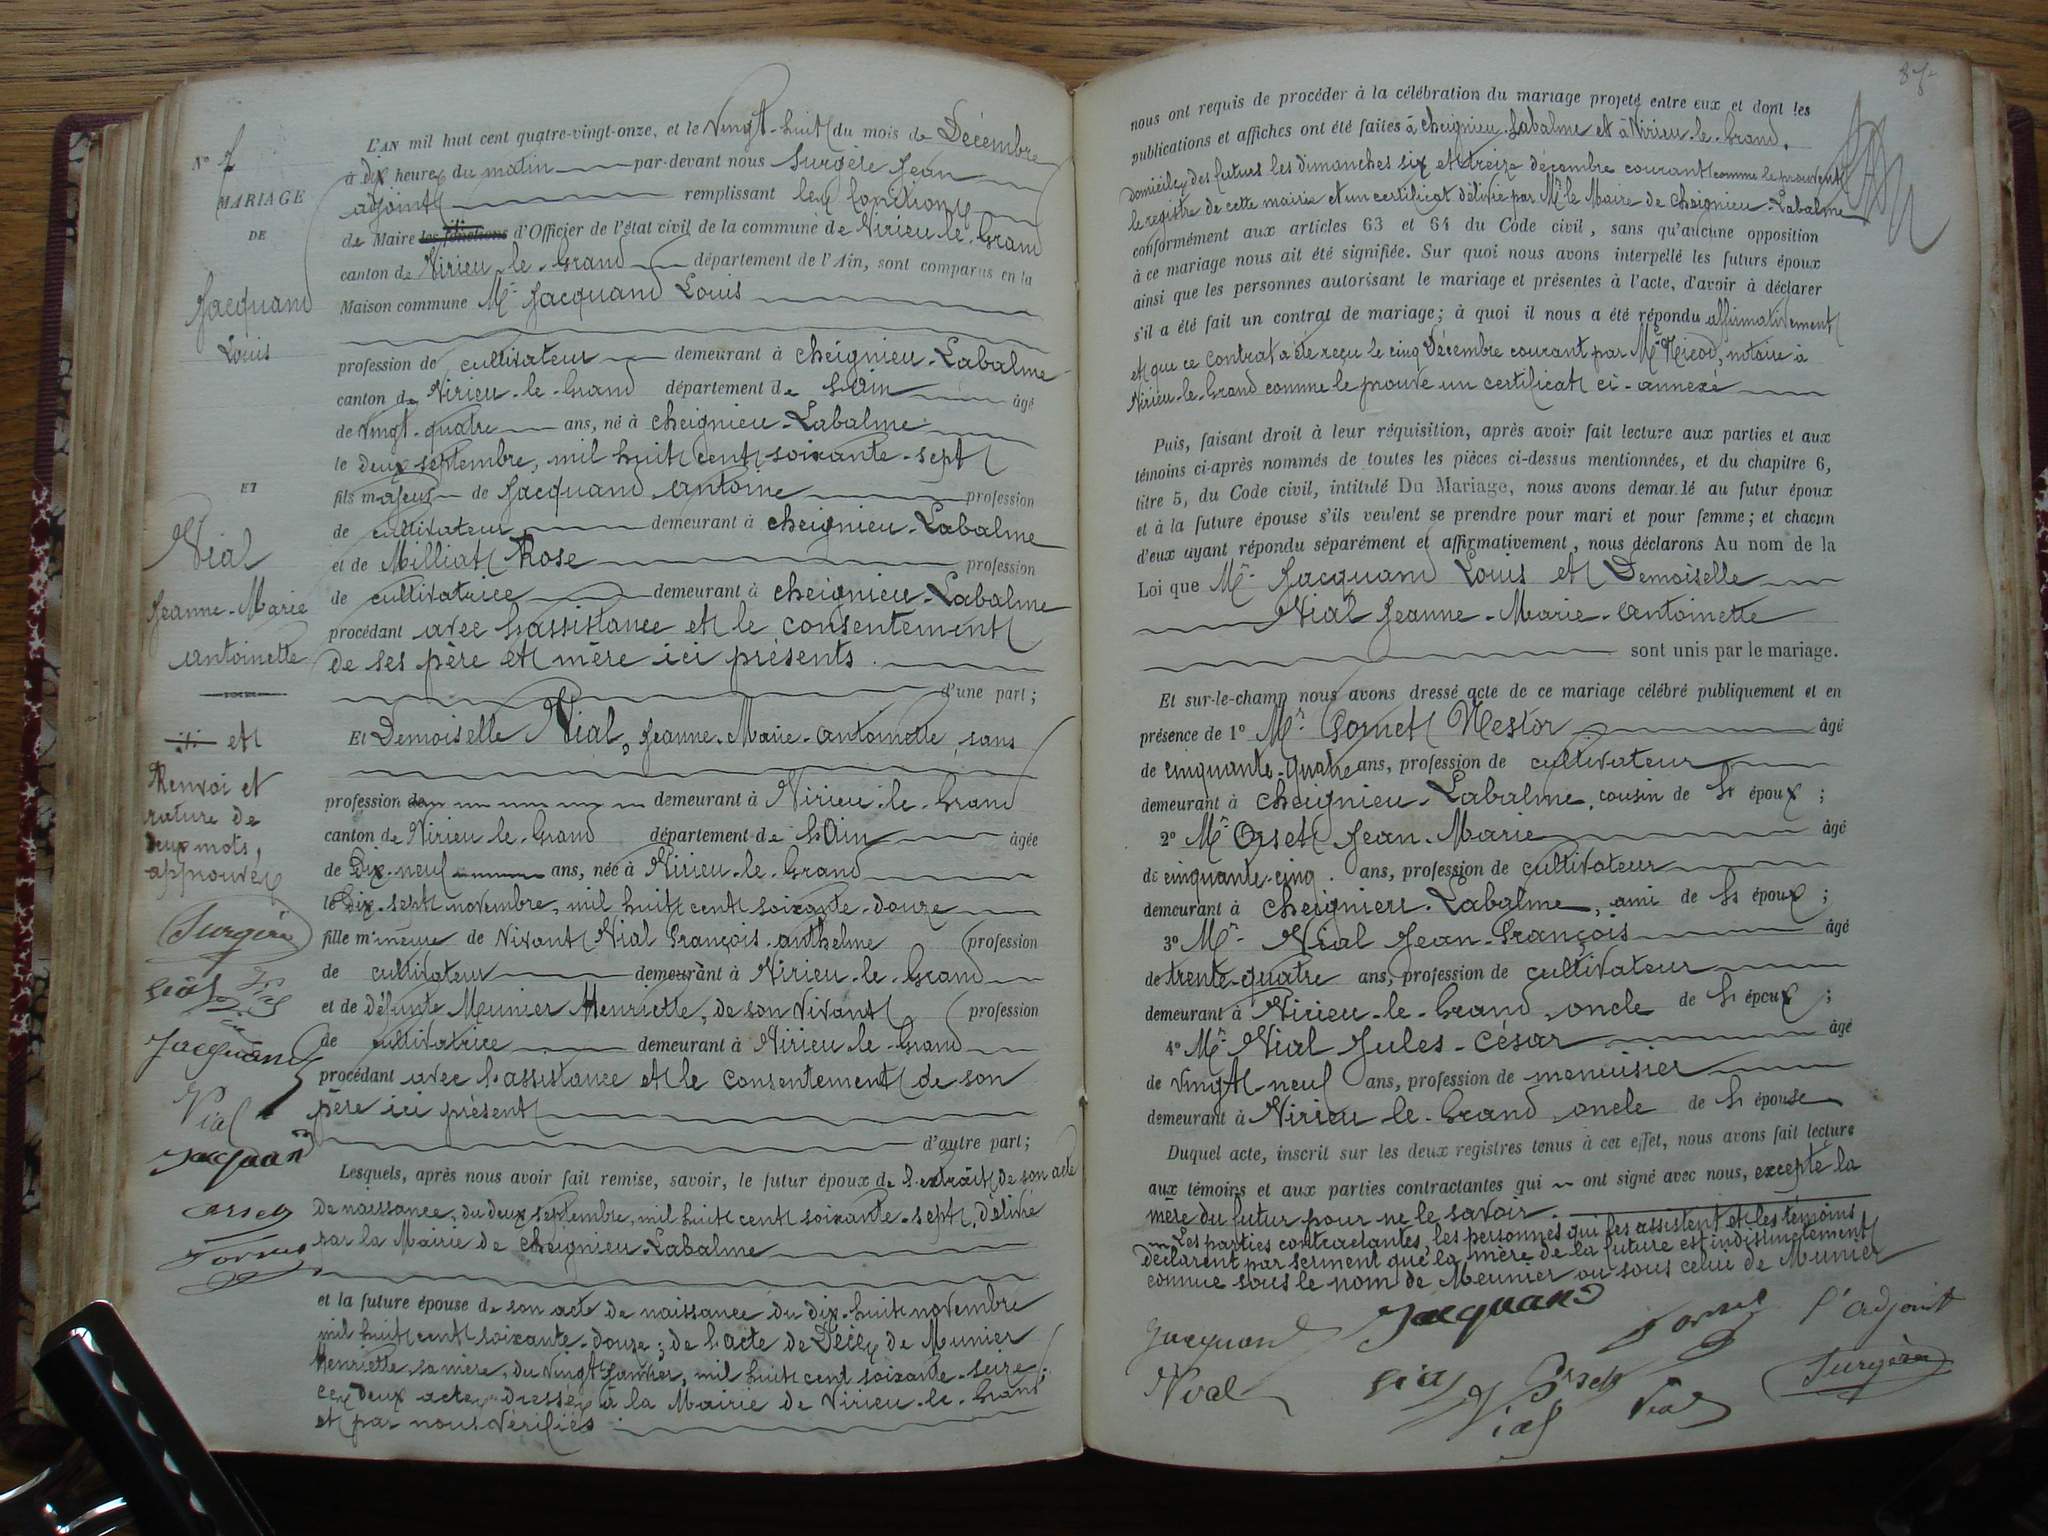 N°
MARIAGE
DE
Jacquand
Louis
ET
Vial
Jeanne-Marie
Antoinette
et
Renvoi et
rature de
deux mots,
approuvés
Surgère
Vial
Jacquand
Vial
Jacquand
Orset
L'AN mil huit cent quatre-vingt-onze, et le Vingt-huit du mois de Décembre
à dix heures du matin par-devant nous Surgère Jean
adjoint remplissant les fonctions
de Maire les fonctions d'Officier de l'état civil de la commune de Virieu-le-Grand
canton de Virieu-le-Grand département de l'Ain, sont comparus en la
Maison commune Mr Jacquand Louis
profession de cultivateur demeurant à Cheignieu-Labalme
canton de Virieu-le-Grand département de l'Ain âgé
de vingt-quatre ans, né à Cheignieu-Labalme
le deux septembre, mil huit cent soixante-sept
fils majeur de Jacquand Antoine profession
de cultivateur demeurant à Cheignieu-Labalme
et de Milliat Rose profession
de cultivatrice demeurant à Cheignieu-Labalme
procédant avec l'assistance et le consentement
de ses père et mère ici présents.
d'une part;
Et Demoiselle Vial, Jeanne-Marie-Antoinette, sans
profession de demeurant à Virieu-le-Grand
canton de Virieu-le-Grand département de l'Ain âgée
de Dix-neuf ans, née à Virieu-le-Grand
le Dix-sept novembre, mil huit cent soixante-douze
fille mineure de Vivant Vial François-Anthelme profession
de cultivateur demeurant à Virieu-le-Grand
et de défunte Meunier Henriette, de son vivant profession
de cultivatrice demeurant à Virieu-le-Grand
procédant avec l'assistance et le consentement de son
père ici présent
d'autre part;
Lesquels, après nous avoir fait remise, savoir, le futur époux de l'extrait de son acte
de naissance, du deux septembre, mil huit cent soixante-sept, délivré
par la Mairie de Cheignieu-Labalme
et la future épouse de son acte de naissance du dix-huit novembre
mil huit cent soixante-douze; de l'acte de Décès de Munier
Henriette sa mère, du vingt janvier, mil huit cent soixante-seize;
ces deux actes dressés à la Mairie de Virieu-le-Grand
et par nous vérifiés
87
nous ont requis de procéder à la célébration du mariage projeté entre eux et dont les
publications et affiches ont été faites à Cheignieu-Labalme et à Virieu-le-Grand,
domiciles des futurs les dimanches six et treize décembre courant comme le prouvent
le registre de cette mairie et un certificat délivré par Mr le Maire de Cheignieu-Labalme
conformément aux articles 63 et 64 du Code civil, sans qu'aucune opposition
à ce mariage nous ait été signifiée. Sur quoi nous avons interpellé les futurs époux
ainsi que les personnes autorisant le mariage et présentes à l'acte, d'avoir à déclarer
s'il a été fait un contrat de mariage; à quoi il nous a été répondu affirmativement
et que ce contrat a été reçu le cinq Décembre courant par Me Nicod, notaire à
Virieu-le-Grand comme le prouve un certificat ci-annexé
Puis, faisant droit à leur réquisition, après avoir fait lecture aux parties et aux
témoins ci-après nommés de toutes les pièces ci-dessus mentionnées, et du chapitre 6,
titre 5, du Code civil, intitulé Du Mariage, nous avons demandé au futur époux
et à la future épouse s'ils veulent se prendre pour mari et pour femme; et chacun
d'eux ayant répondu séparément et affirmativement, nous déclarons Au nom de la
Loi que Mr Jacquand Louis et Demoiselle
Vial Jeanne-Marie-Antoinette
sont unis par le mariage.
Et sur-le-champ nous avons dressé acte de ce mariage célébré publiquement et en
présence de 1° Mr Gornet Nestor âgé
de cinquante-quatre ans, profession de cultivateur
demeurant à Cheignieu-Labalme, cousin de l'époux;
2° Mr Orset Jean-Marie âgé
de cinquante-cinq ans, profession de cultivateur
demeurant à Cheignieu-Labalme, ami de l'époux;
3° Mr Vial Jean-François âgé
de trente-quatre ans, profession de cultivateur
demeurant à Virieu-le-Grand, oncle de l'époux;
4° Mr Vial Jules-César âgé
de vingt neuf ans, profession de menuisier
demeurant à Virieu-le-Grand, oncle de l'épouse
Duquel acte, inscrit sur les deux registres tenus à cet effet, nous avons fait lecture
aux témoins et aux parties contractantes qui ont signé avec nous, excepté la
mère du futur pour ne le savoir.
Les parties contractantes, les personnes qui les assistent et les témoins
déclarent par serment que la mère de la future est indistinctement
connue sous le nom de Meunier ou sous celui de Munier
Jacquand Jacquand l'adjoint
Vial Orset Vial Surgère
Vial